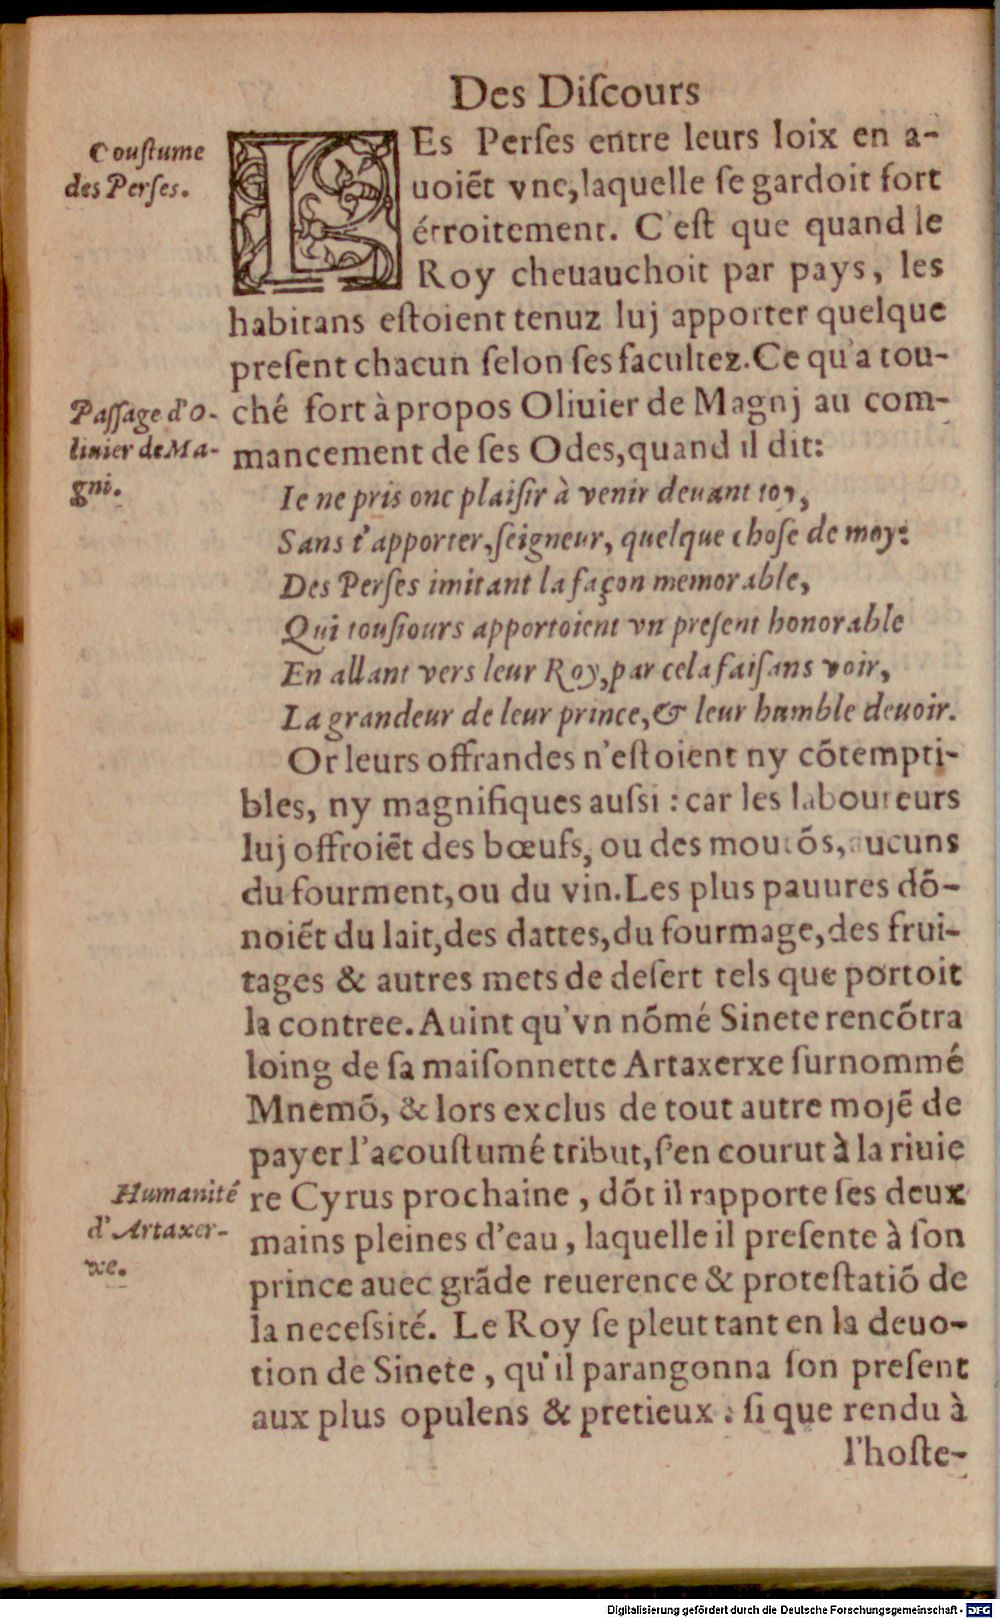 Des Diſcours
Couſtume
des Perſes.
LEs Perſes entre leurs loix en a-
uoiẽt vne, laquelle ſe gardoit fort
étroitement. C'eſt que quand le
Roy cheuauchoit par pays, les
habitans eſtoient tenuz luj apporter quelque
preſent chacun ſelon ſes facultez. Ce qu'a tou-
Paſſage d'O-
liuier de Ma-
gni.
ché fort à propos Oliuier de Magnj au com-
mancement de ſes Odes, quand il dit:
Ie ne pris onc plaiſir à venir deuant toy,
Sans t'apporter, ſeigneur, quelque choſe de moy:
Des Perſes imitant la façon memorable,
Qui touſiours apportoient vn preſent honorable
En allant vers leur Roy, par cela faiſans voir,
La grandeur de leur prince, & leur humble deuoir.
Or leurs offrandes n'eſtoient ny cõtempti-
bles, ny magnifiques auſsi : car les laboureurs
luj offroiẽt des bœufs, ou des moutõs, aucuns
du fourment, ou du vin. Les plus pauures dõ-
noiẽt du lait, des dattes, du fourmage, des frui-
tages & autres mets de deſert tels que portoit
la contree. Auint qu'vn nõmé Sinete rencõtra
loing de ſa maiſonnette Artaxerxe ſurnommé
Mnemõ, & lors exclus de tout autre mojẽ de
payer l'acouſtumé tribut, ſ'en courut à la riuie
Humanité
d'Artaxer-
xe.
re Cyrus prochaine, dõt il rapporte ſes deux
mains pleines d'eau, laquelle il preſente à ſon
prince auec grãde reuerence & proteſtatiõ de
la neceſsité. Le Roy ſe pleut tant en la deuo-
tion de Sinete, qu'il parangonna ſon preſent
aux plus opulens & pretieux : ſi que rendu à
l'hoſte-
Digitalisierung gefördert durch die Deutsche Forschungsgemeinschaft - DFG